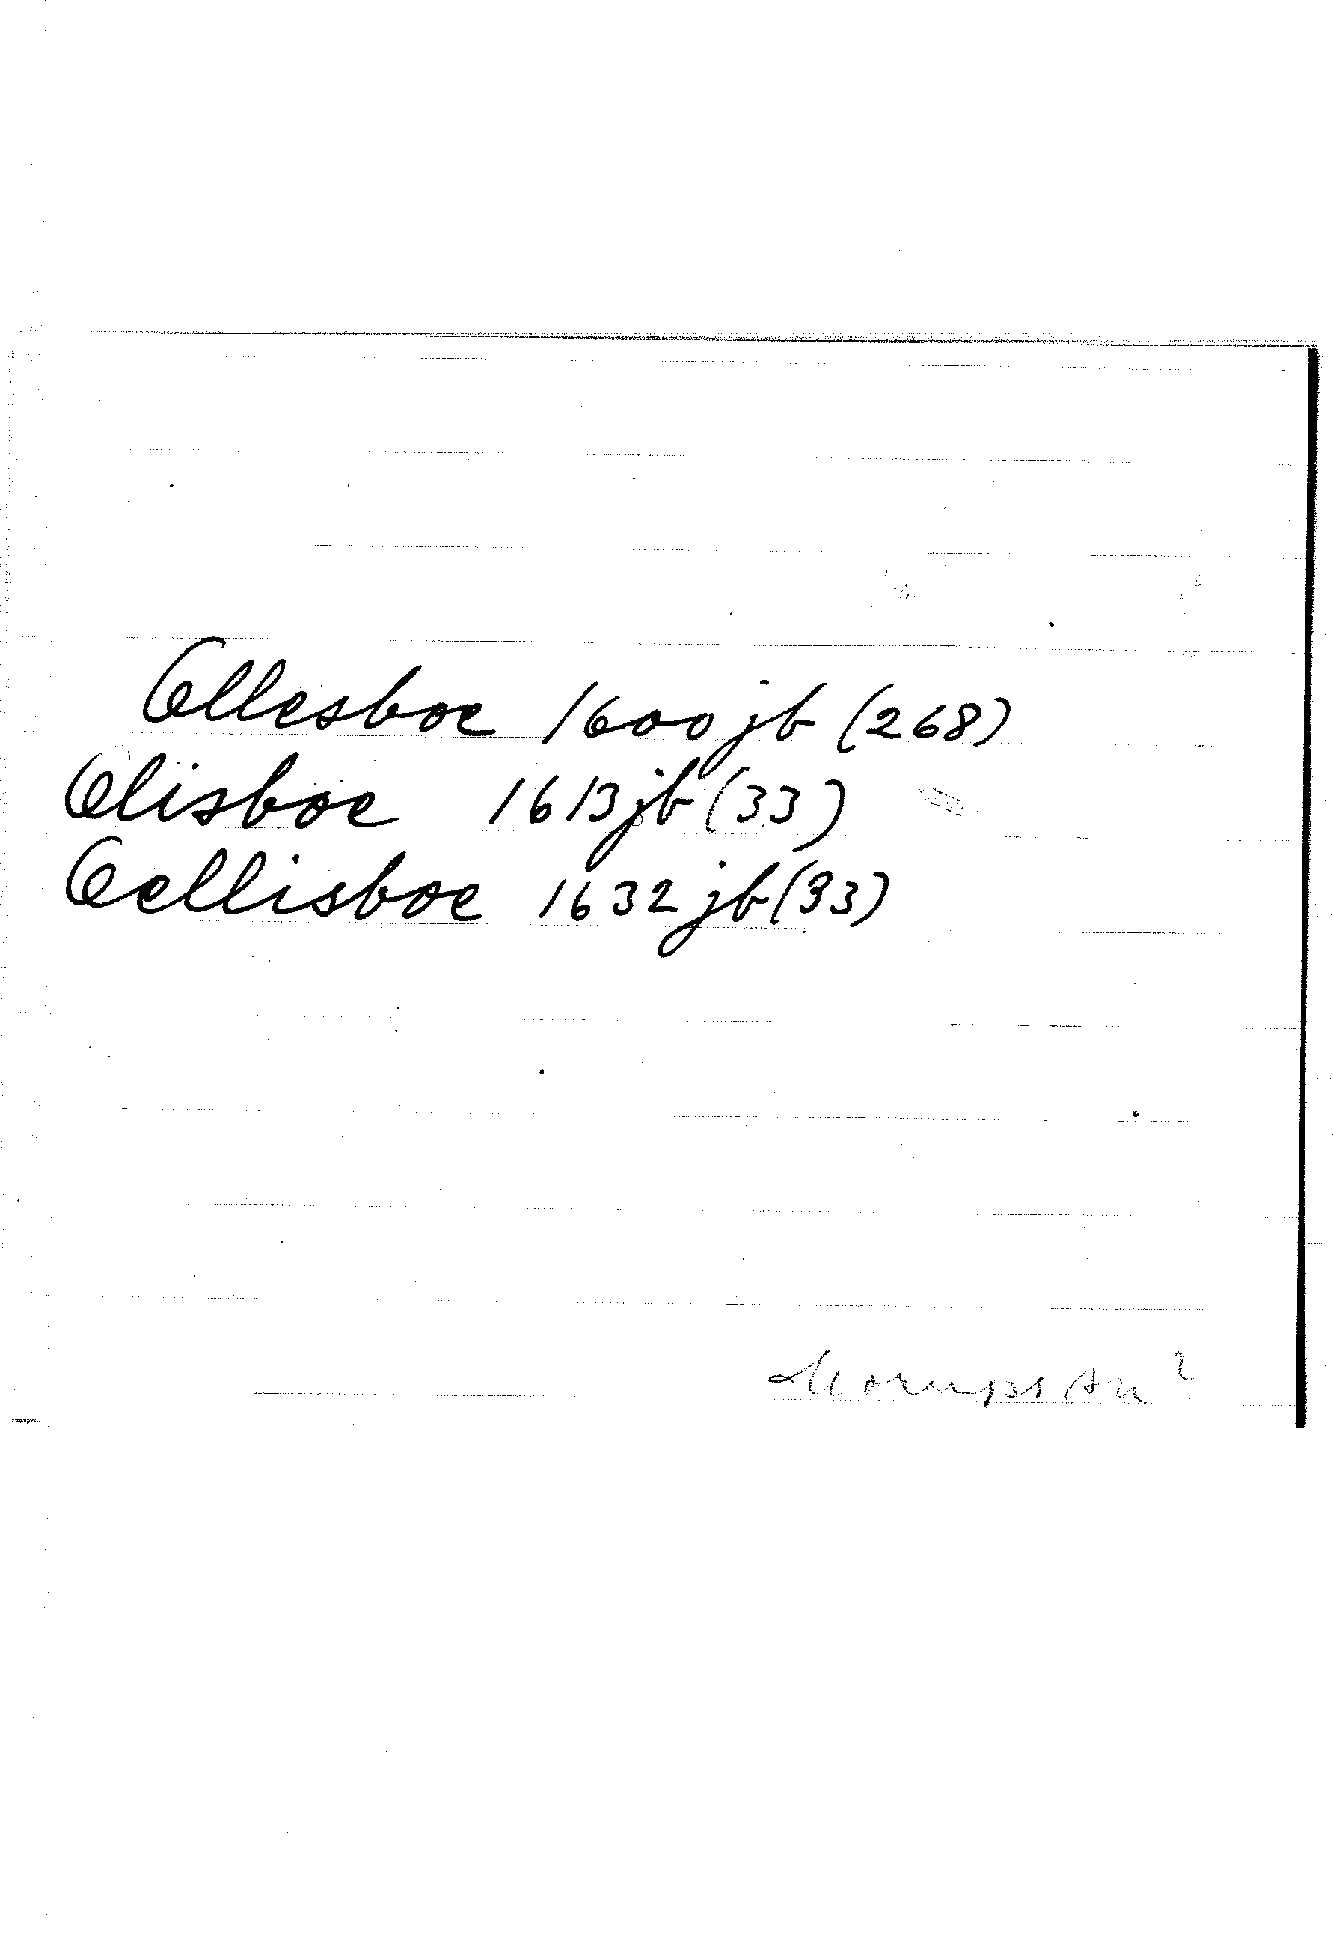 Ellesboe 1600 jb (268)
Elisboe 1613 jb (33)
Eellisboe 1632 jb (33)
Morups sn ?